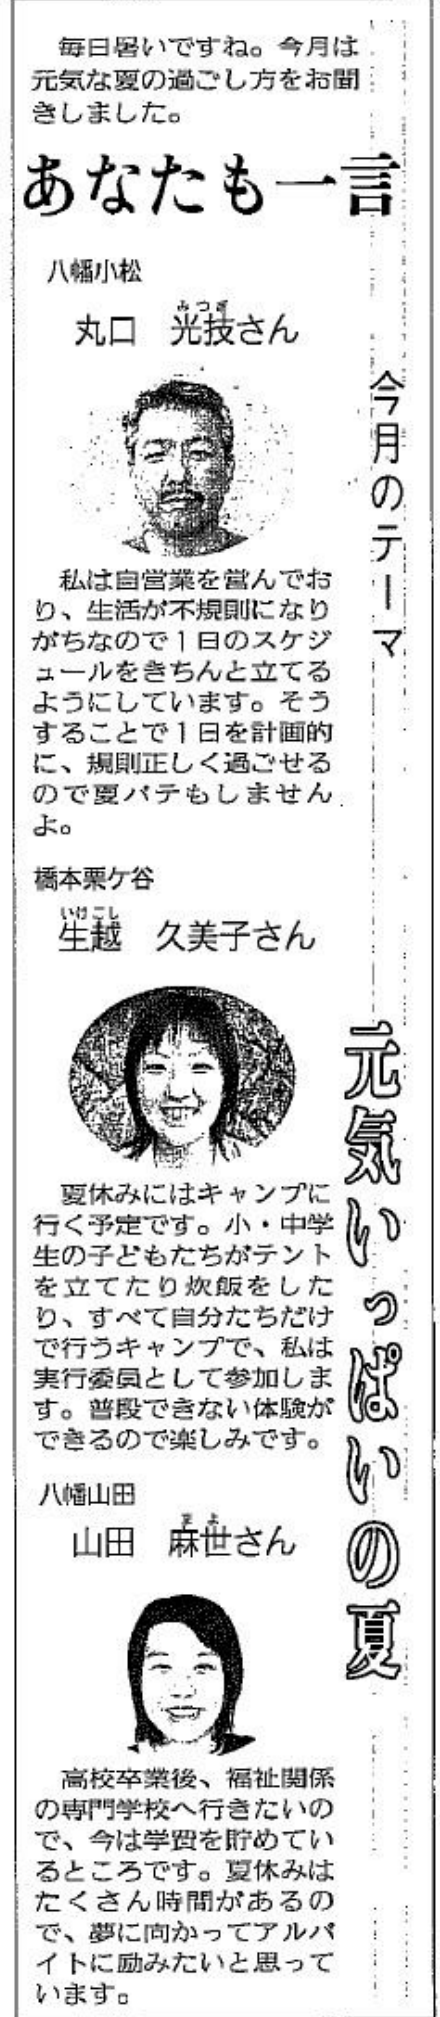 毎日暑いですね。今月は
元気な夏の過ごし方をお聞
きしました。
あなたも一言
今月のテーマ
元気いっぱいの夏
八幡小松
みつぎ
丸口　光技さん
私は自営業を営んでお
り、生活が不規則になり
がちなので１日のスケジ
ュールをきちんと立てる
ようにしています。そう
することで１日を計画的
に、規則正しく過ごせる
ので夏バテもしません
よ。
橋本栗ケ谷
いけこし
生越　久美子さん
夏休みにはキャンプに
行く予定です。小・中学
生の子どもたちがテント
を立てたり炊飯をした
り、すべて自分たちだけ
で行うキャンプで、私は
実行委員として参加しま
す。普段できない体験が
できるので楽しみです。
八幡山田
まよ
山田　麻世さん
高校卒業後、福祉関係
の専門学校へ行きたいの
で、今は学費を貯めてい
るところです。夏休みは
たくさん時間があるの
で、夢に向かってアルバ
イトに励みたいと思って
います。